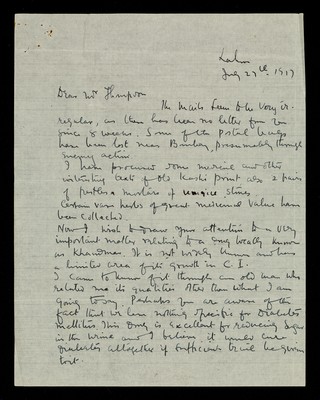 July 27th 1917
Dear Mr Thompson
The mails seem to be very ir-
regular, as there has been no letter from you
since 8 weeks. Some of the Postal bags
have been lost near Bombay, presumably through
enemy action
I have procured some and other
interesting of old Kashi print also 2 pairs
of pestles & mortars of unique stones
Certain rare herbs of great medicinal value have
been collected.
Now I wish to draw your attention to a very
important matter relating to a drug locally known
as It is not widely known and has
a limited area for its growth in C. I.
I came to know of it through an old man who
related me its qualities other than what I am
going to say. Perhaps you are aware of the
fact that we have nothing specific for Diabetes
mellitus. This Drug is excellent for reducing sugar
in the urine and I believe, it would cure
Diabetes altogether if sufficient trial be given
to it.